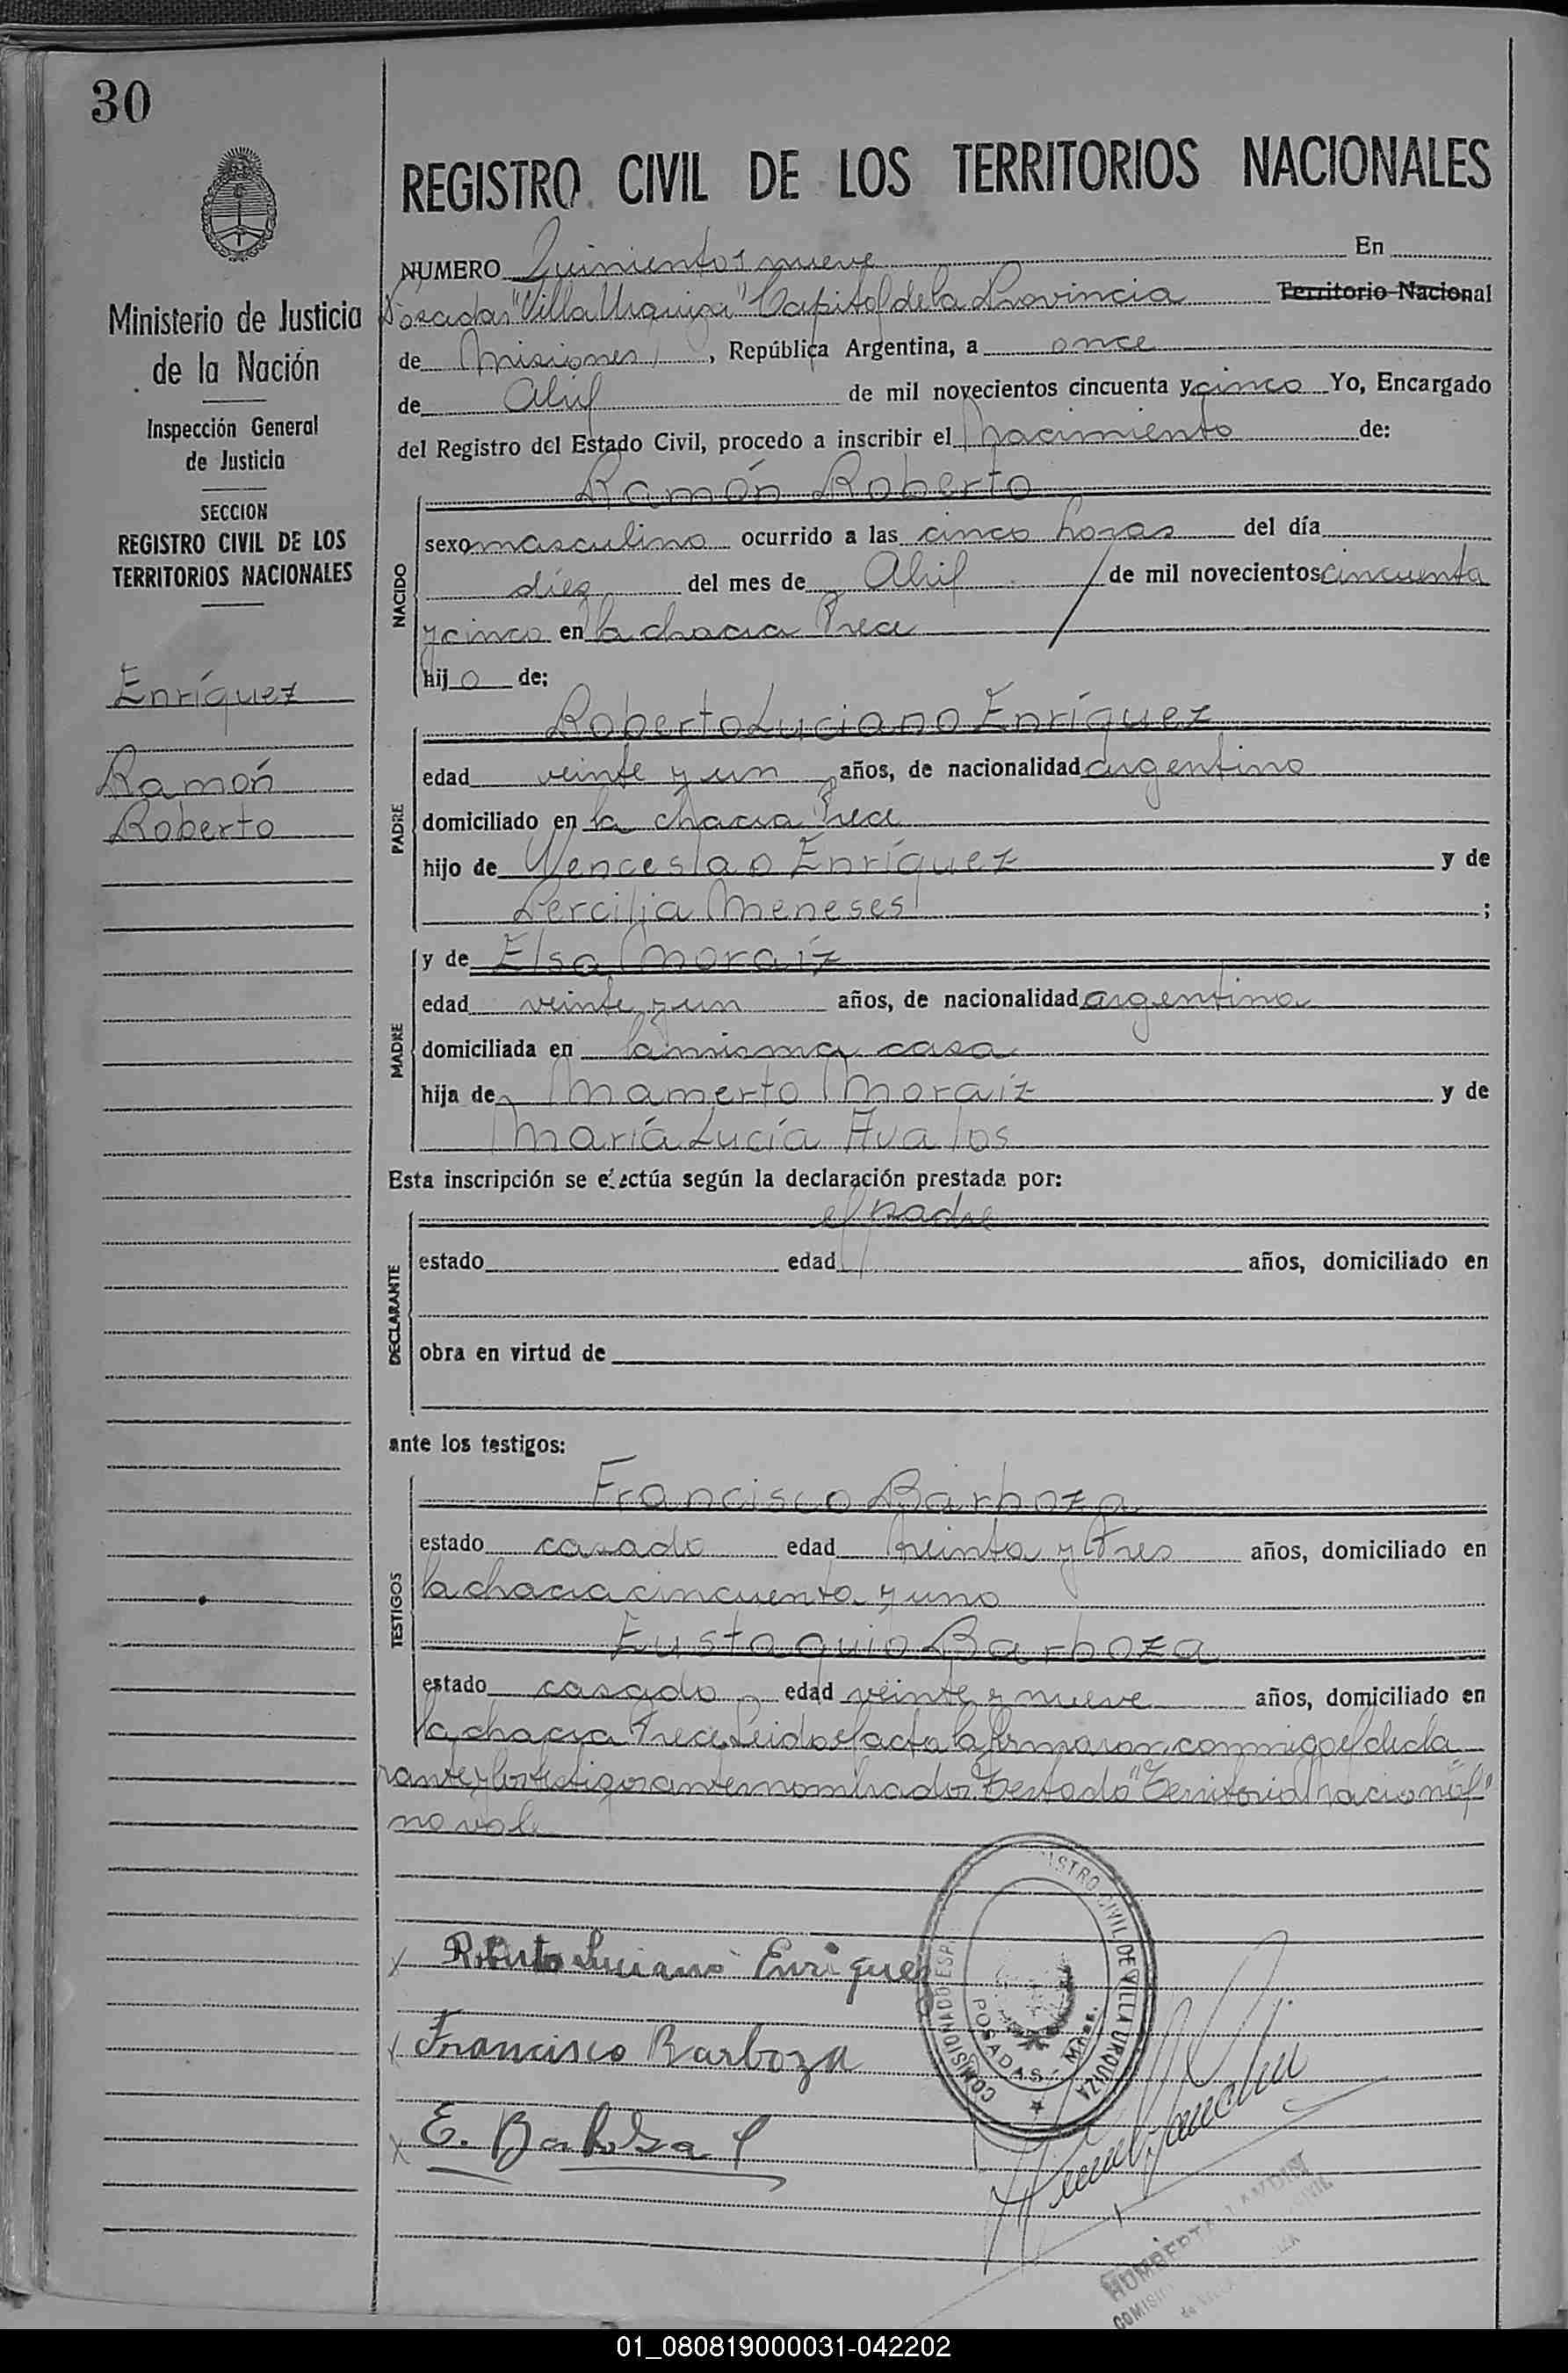 30
REGISTRO CIVIL DE LOS TERRITORIOS NACIONALES
Ministerio de Justicia
de la Nación
Inspección General
de Justicia
SECCION
REGISTRO CIVIL DE LOS
TERRITORIOS NACIONALES
Enríquez
Ramón
Roberto
NUMERO Quinientos nueve En
Posadas "Villa Urquiza" Capital de la Provincia Territorio Nacional
de Misiones, República Argentina, a once
de Abril de mil novecientos cincuenta y cinco Yo, Encargado
del Registro del Estado Civil, procedo a inscribir el nacimiento de:
NACIDO
Ramón Roberto
sexo masculino ocurrido a las cinco horas del día
diez del mes de Abril de mil novecientos cincuenta
y cinco en la chacra trece
hijo de:
PADRE
Roberto Luciano Enríquez
edad veinte y un años, de nacionalidad argentino
domiciliado en la chacra trece
hijo de Wenceslao Enríquez y de
Percilia Meneses;
MADRE
y de Elsa Moraiz
edad veinte y un años, de nacionalidad argentina
domiciliada en la misma casa
hija de Mamerto Moraiz y de
María Lucía Avalos
Esta inscripción se efectúa según la declaración prestada por:
DECLARANTE
el padre
estado edad años, domiciliado en
obra en virtud de
ante los testigos:
TESTIGOS
Francisco Barboza
estado casado edad treinta y tres años, domiciliado en
la chacra cincuenta y uno
Eustaquio Barboza
estado casado edad veinte y nueve años, domiciliado en
la chacra trece. Leido el acta la firmaron conmigo el decla
rante y los testigos antes nombrados. Testado "Territorio Nacional"
no vale
x Roberto Luciano Enriquez
x Francisco Barboza
x E. Barboza
REGISTRO CIVIL DE VILLA URQUIZA
COMISIONADO ESP.
POSADAS - Mnes.
HUMBERTO
COMISI
01_080819000031-042202